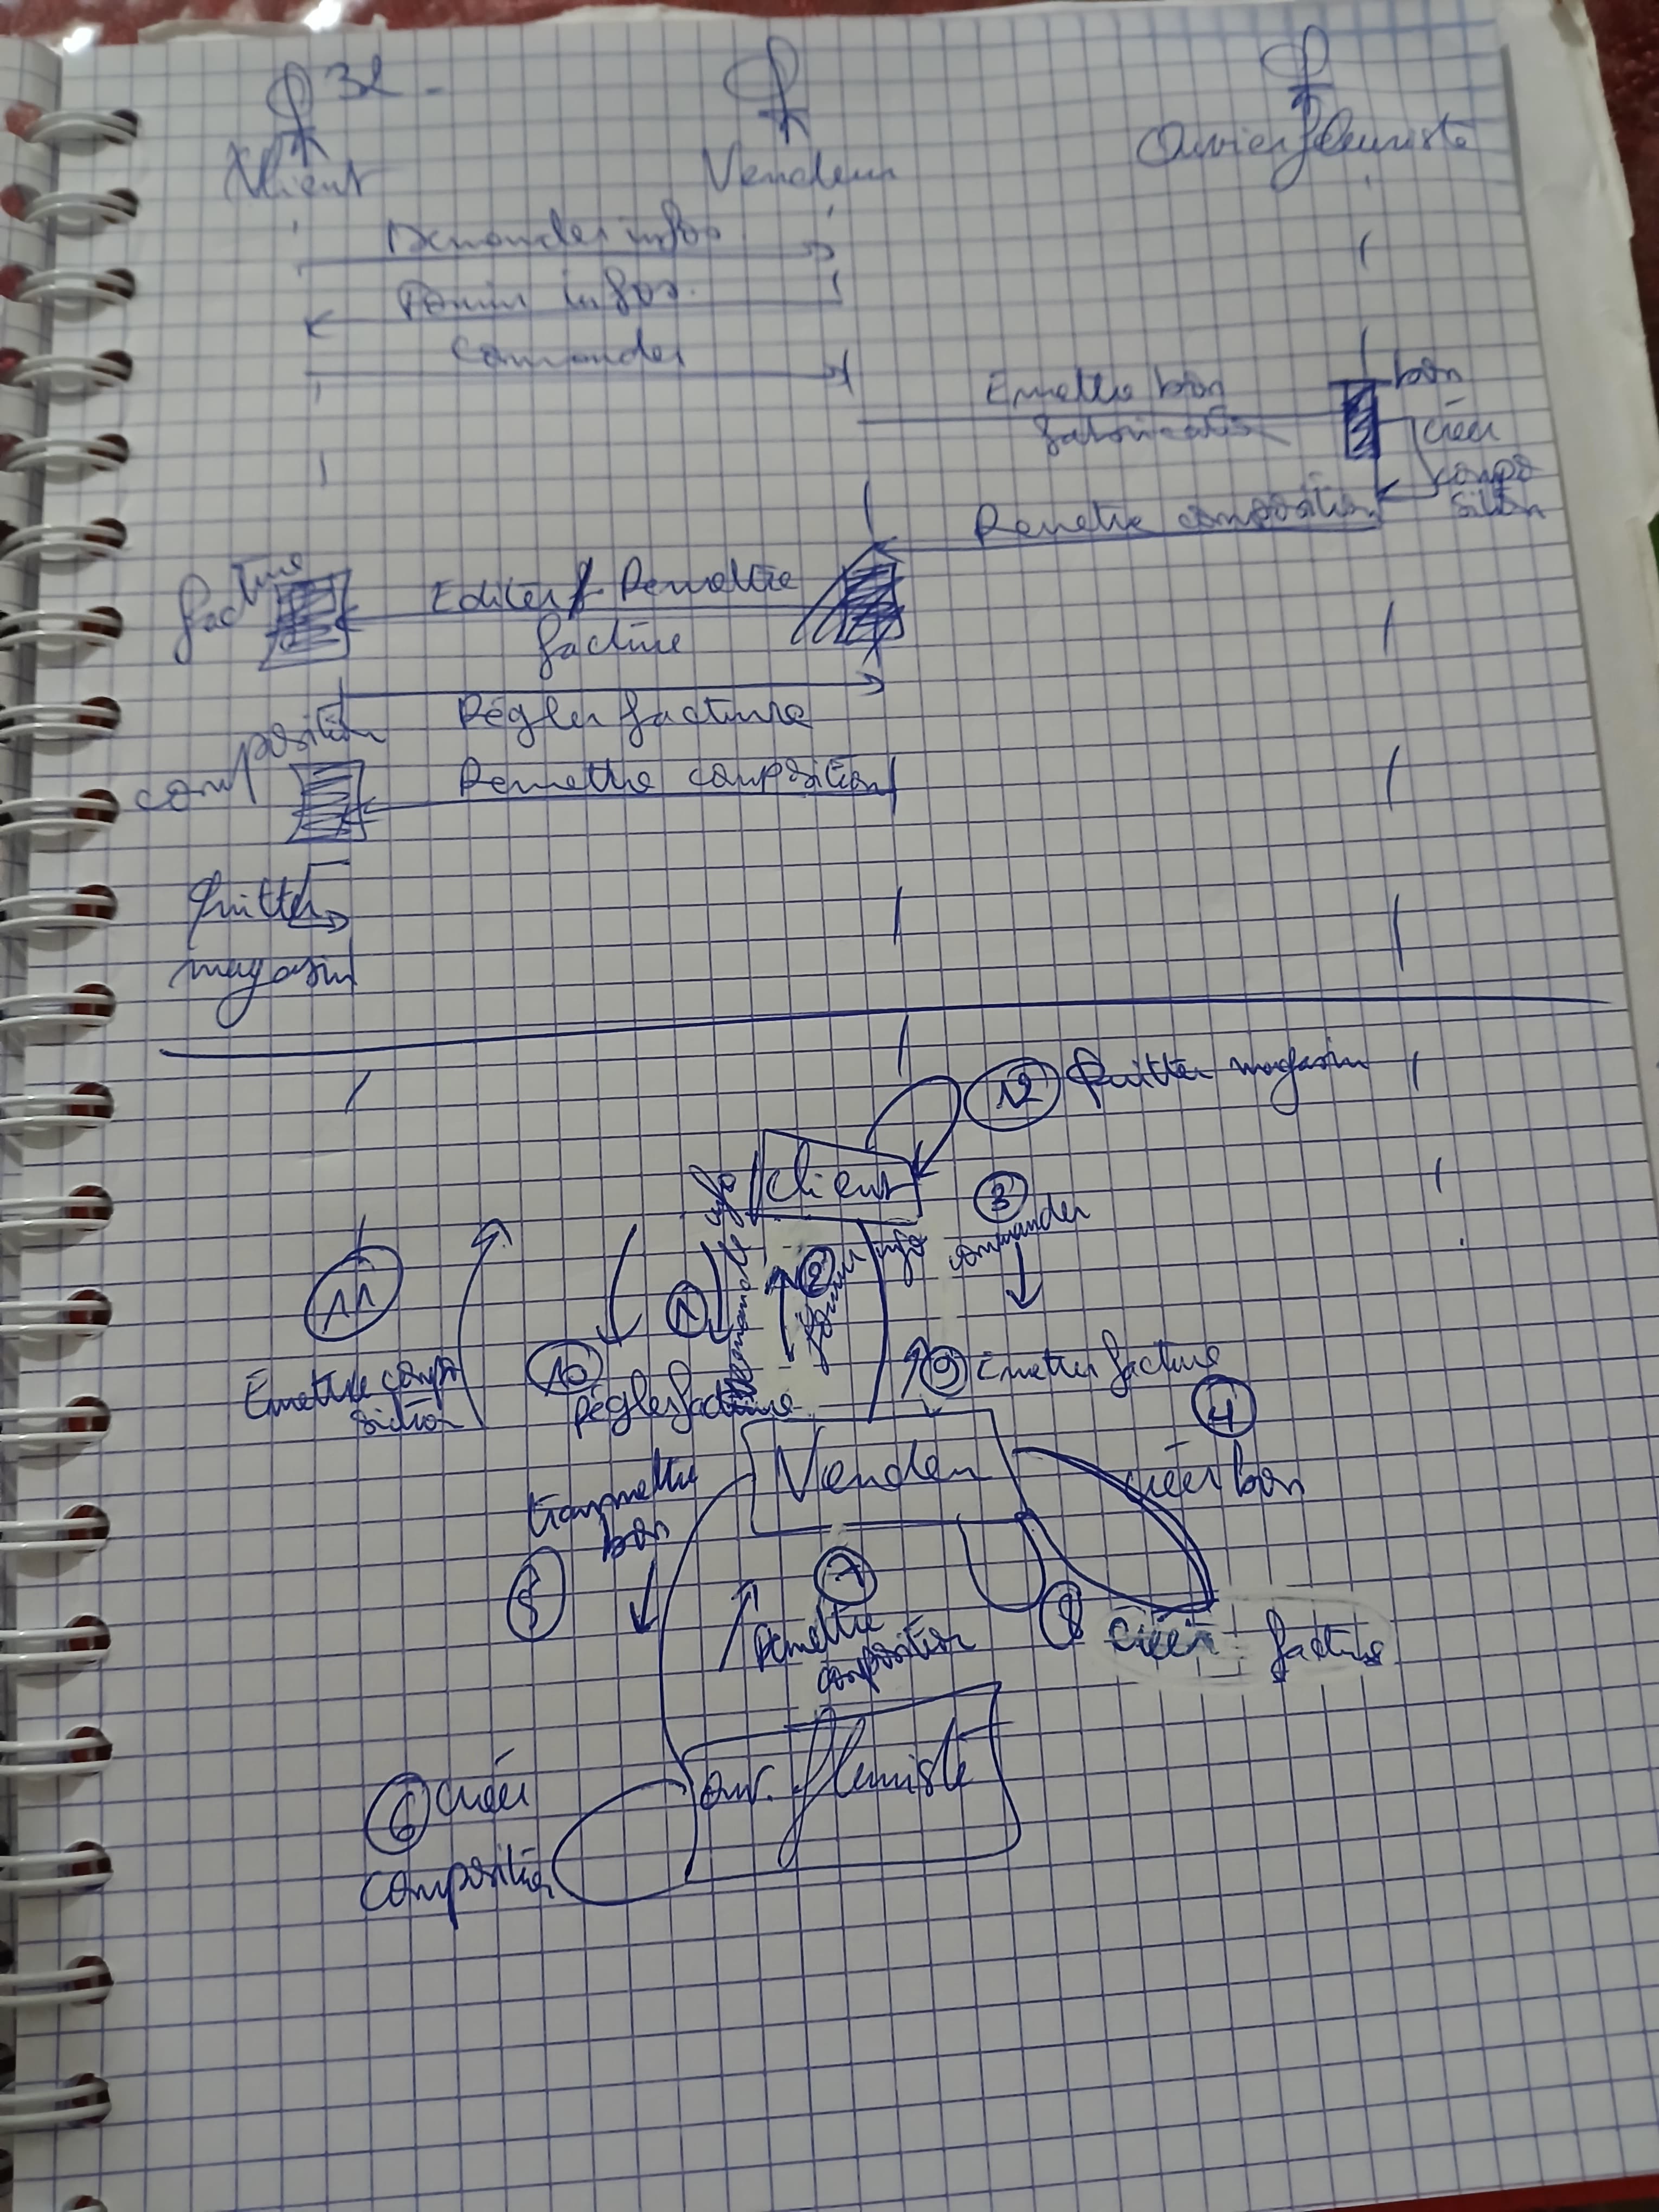 32 -
Client Vendeur Ouvrier fleuriste
Demander infos
Fournir infos.
Commander
Emettre bon
fabrication
bon
créer
compo
sition
Remettre composition
facture
Editer / Remettre
facture
Régler facture
composition
Remettre composition
Quitter
magasin
12 Quitter magasin
Client
3
commander
1 Demande info
2 fournir info
11
Emettre compo
sition
10
Régler facture
9 Emettre facture
4
créer bon
Vendeu
transmettre
bon
5
7
Remettre
composition
8 créer facture
ouv. fleuriste
6 créer
composition